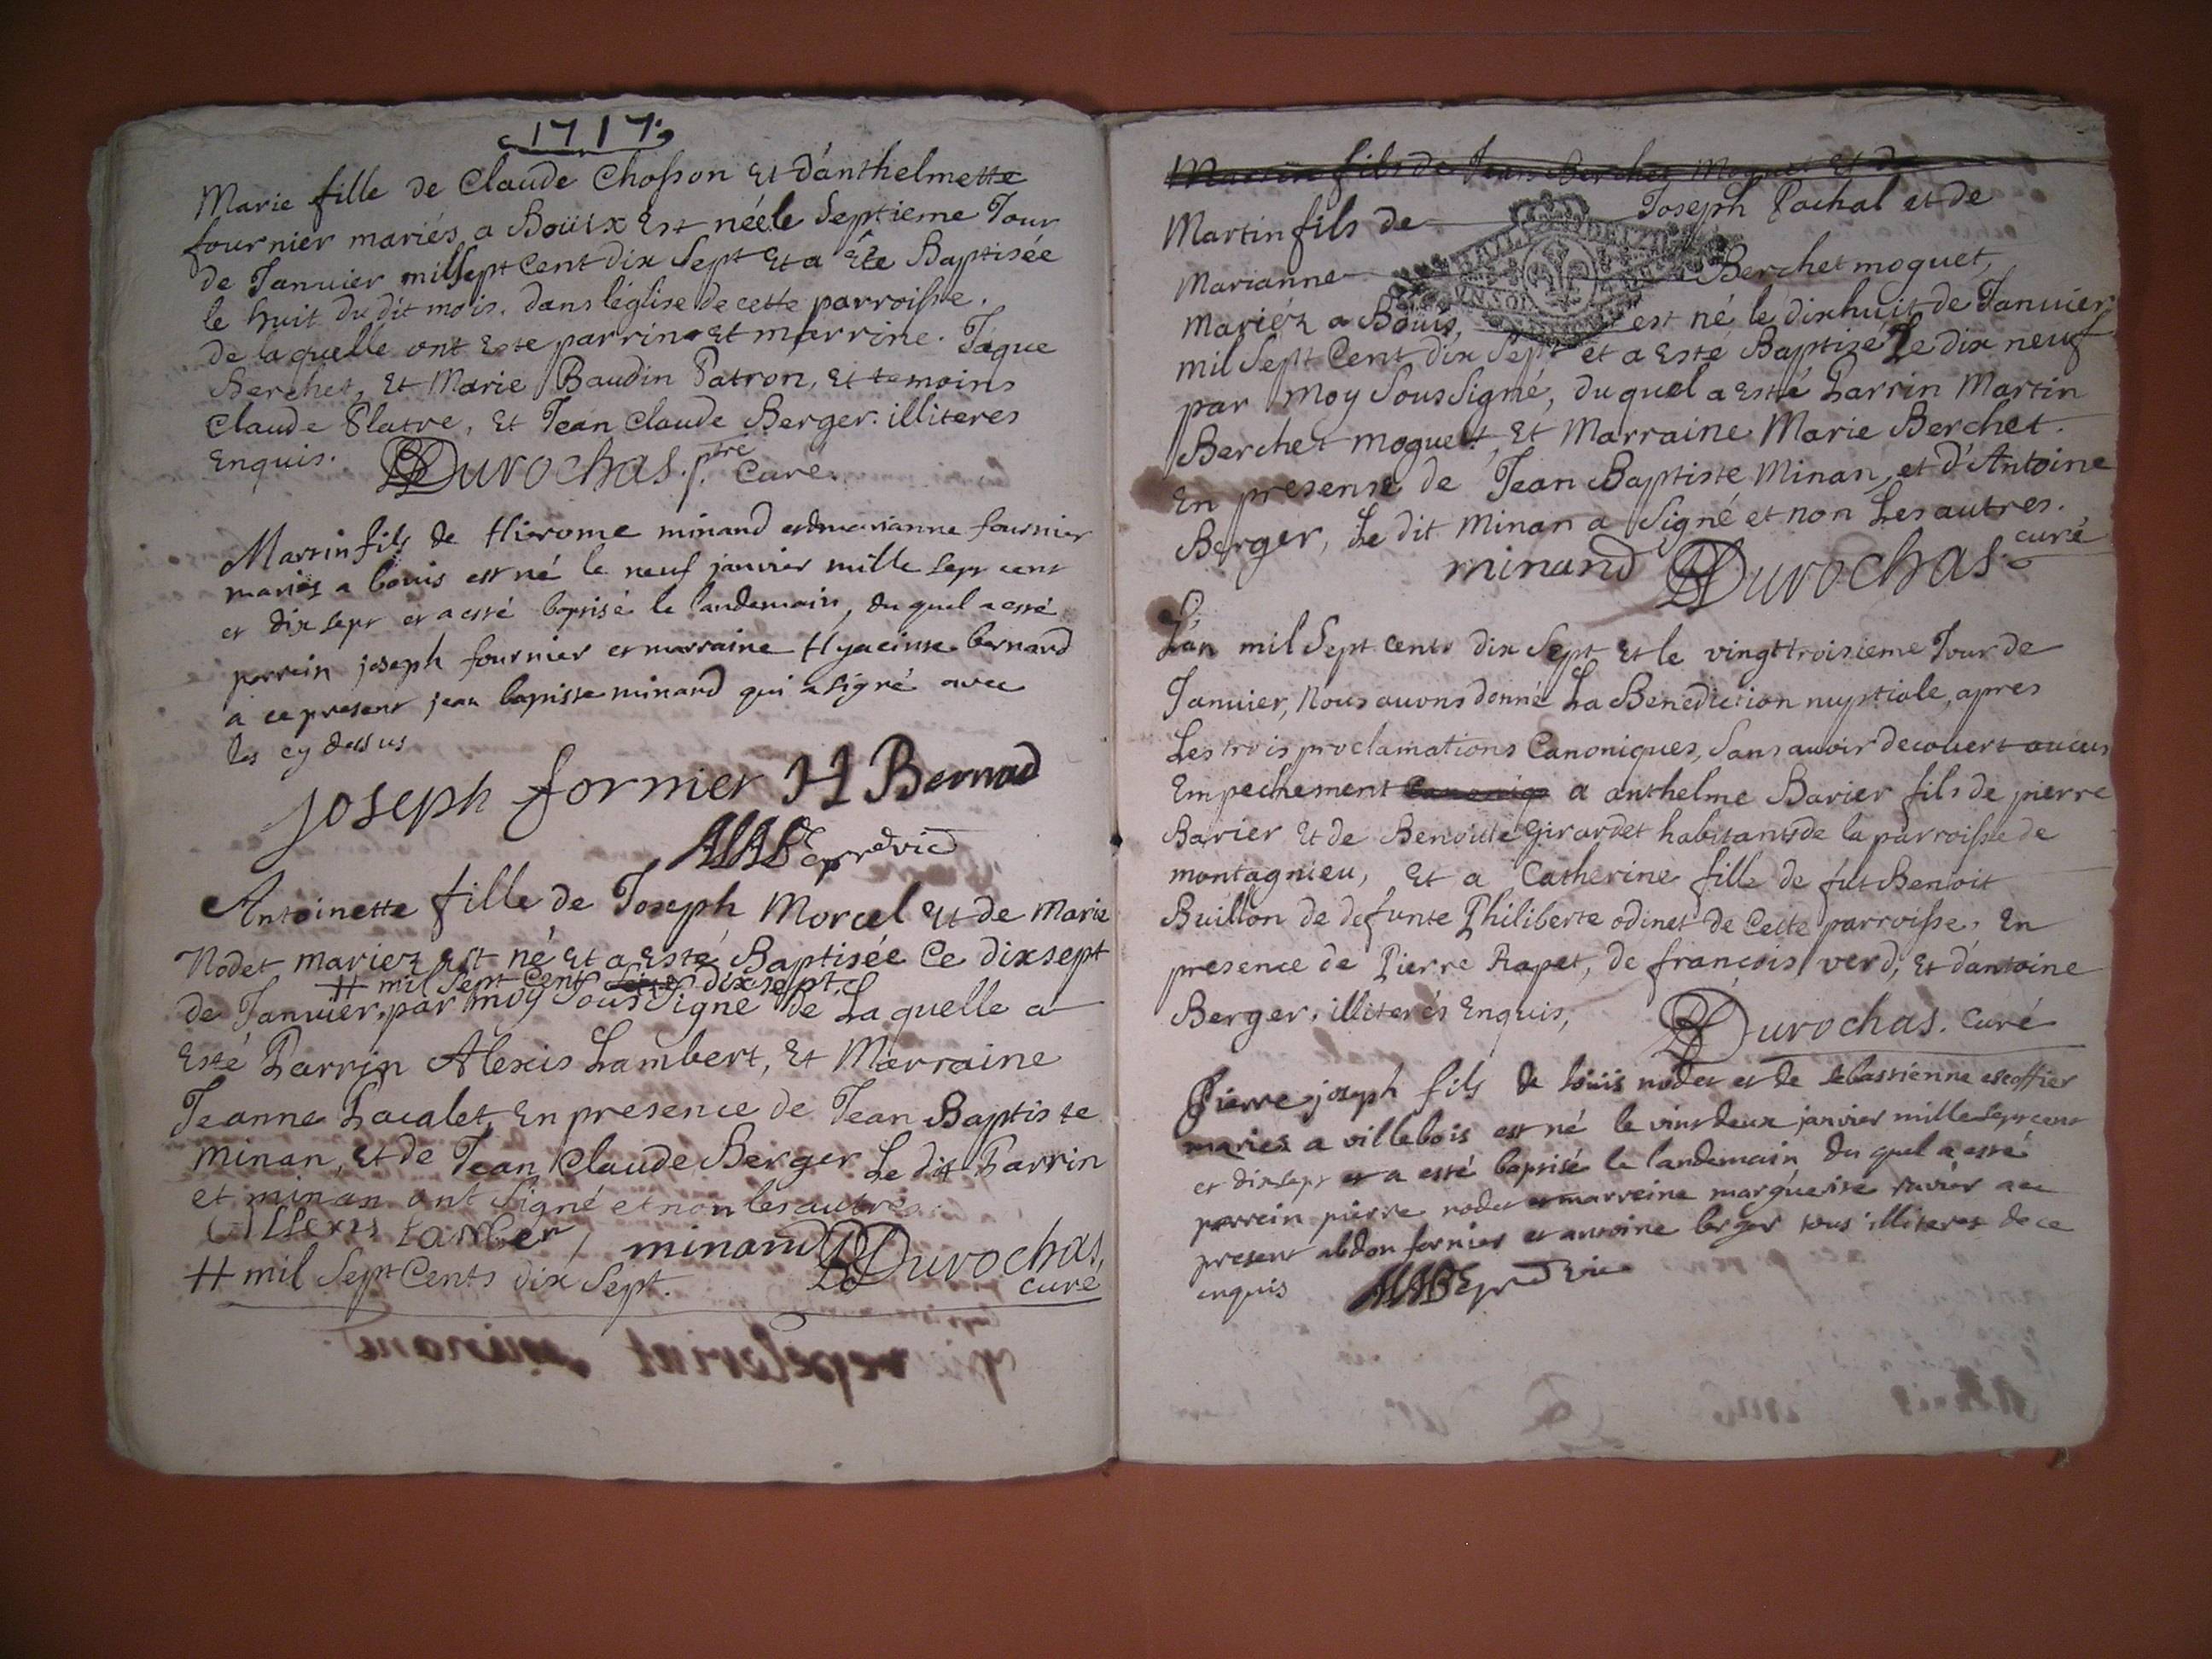 1717.
Marie fille de Claude Chosson Et d'anthelmette
fournier mariés a Boüix Est néele Septieme Jour
de Januier milSept Cent dix Sept Et a Ete Baptisée
le huit du dit mois. dans léglise de cette parroisse.
de laquelle ont Este parrin Et marrine. Jaque
Berchet, Et Marie Baudin Patron, Et temoins
Claude Platre, Et Jean Claude Berger. illiteres
Enquis. Durochas. ptre Curé.
Martin fils de Hierome minand et de marianne fournier
mariés a bouis est né le neuf janvier mille sept cent
et dix sept et a esté baptisé le landemain, du quel a esté
parrein joseph fournier et marraine Hyacinte bernard
a ce present jean baptiste minand qui a signé avec
les cy dessus
joseph fornier H Bernad
Antoinette fille de Joseph Morcel Et de Marie
Nodet mariez Est né Et a Esté Baptisée Ce dixsept
# mil Sept Cent dix sept
de Januier, par moy Sous Signé de Laquelle a
Esté Parrin Alexis Lambert, Et Marraine
Jeanne Pacalet, En presence de Jean Baptiste
Minan, Et de Jean Claude Berger Le dit Parrin
et minan ont Signé et non les autres.
Allexis Lamber, minand Durochas,
# mil Sept Cents dix Sept. curé
Martin fils de Jean Berchet Moguet Et de
Martin fils de Joseph Pachal et de
Marianne Berchet moguet,
Mariéz a Boüis, est né le dixhuit de Januier
mil Sept Cent dix Sept et a Esté Baptizé Le dix neuf
par moy Sous Signé, du quel a Esté Parrin Martin
Berchet moguet, Et Marraine Marie Berchet.
En presense de Jean Baptiste Minan, et d'Antoine
Berger, Le dit Minan a Signé et non Les autres.
minand Durochas curé
L'an mil Sept Cents dix Sept Et le vingt troisieme Jour de
Januier, Nous auons donné La Benediction nuptiale, apres
Les trois proclamations Canoniques, Sans auoir decouert aucun
Empechement a anthelme Barier fils de pierre
Barier Et de Benoite Girardet habitants de la parroisse de
montagnieu, Et a Catherine fille de fut Benoit
Buillon de defunte Philiberte odinet de Cette parroisse, En
presence de Pierre Rapet, de françois verd, Et d'antoine
Berger, illiterés Enquis, Durochas. Curé
Pierre joseph fils de loüis nodet et de sebastienne escoffier
mariez a villebois est né le vint deux janvier mille sept cent
et dixsept et a esté baptisé le landemain du quel a esté
parrein pierre nodet et marreine marguerite ravier a ce
present abdon fornier et antoine berger tous illiteres de ce
enquis